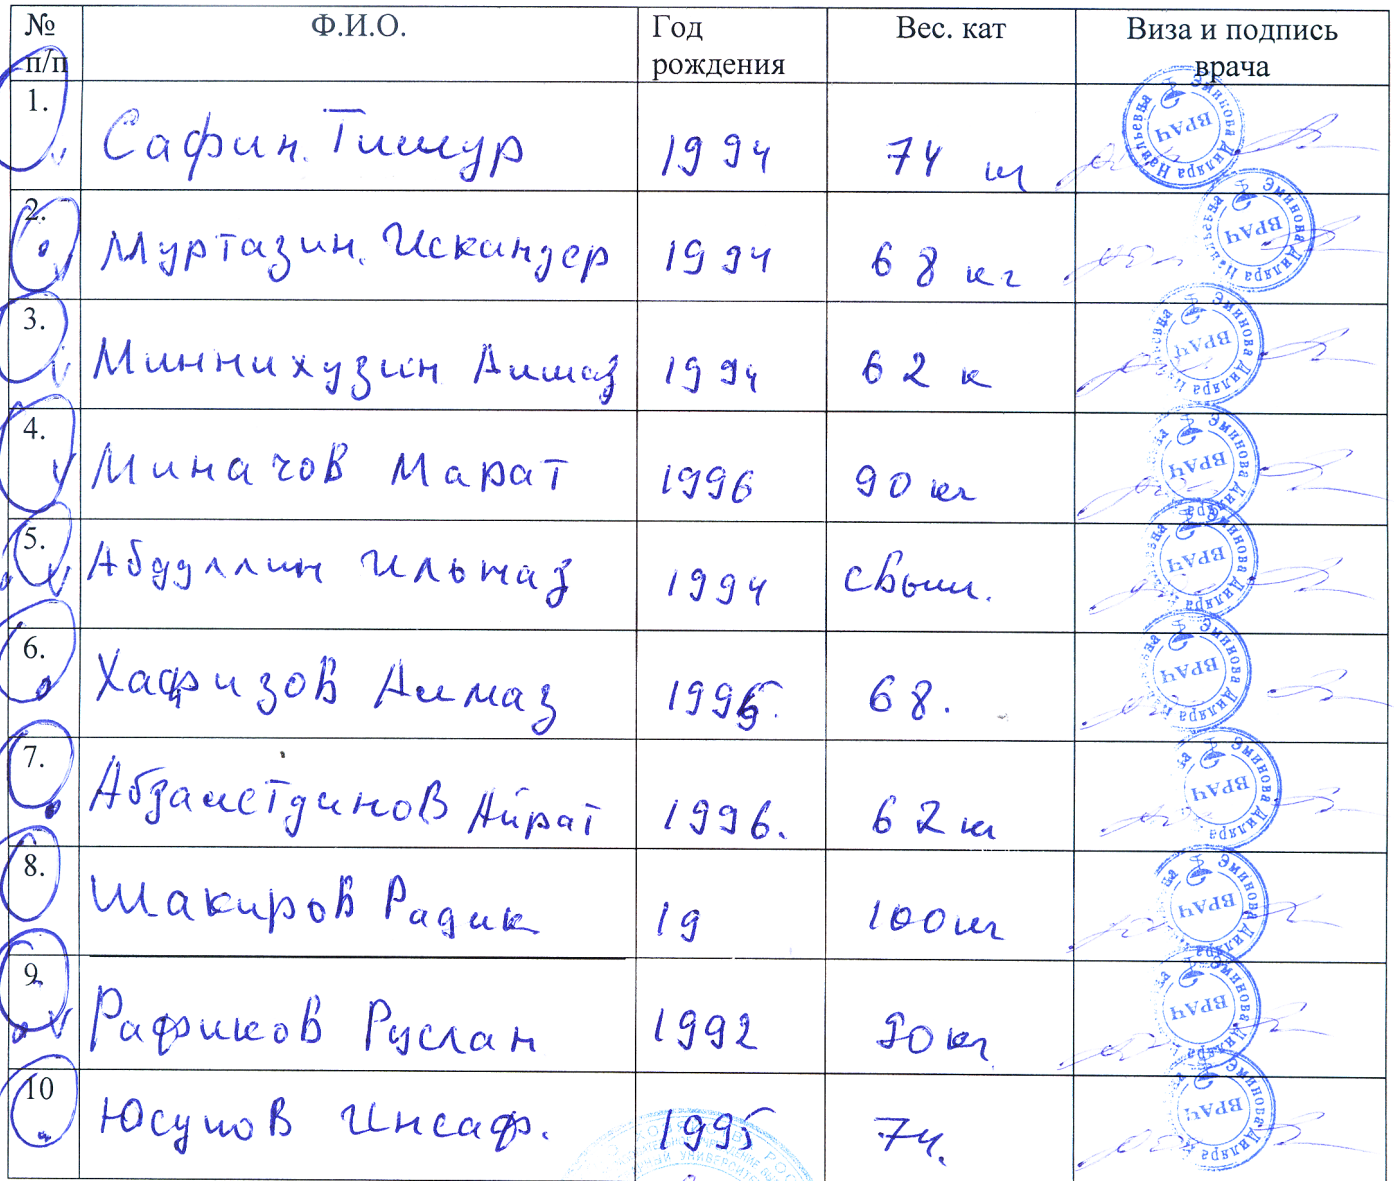 № п/п Ф.И.О. Год рождения Вес. кат Виза и подпись врача
1. Сафин Тимур 1994 74 кг
ВРАЧ Эминова Диляра Наильевна
2. Муртазин Искандер 1994 68 кг
ВРАЧ Эминова Диляра Наильевна
3. Миннихузин Алмаз 1994 62 к
ВРАЧ Эминова Диляра
4. Миначов Марат 1996 90 кг
ВРАЧ Эминова Диляра
5. Абдуллин Ильназ 1994 свыш.
ВРАЧ Эминова Диляра
6. Хафизов Алмаз 1995. 68.
ВРАЧ Эминова Диляра
7. Абзалетдинов Айрат 1996. 62 кг
ВРАЧ Эминова Диляра
8. Шакиров Радик 19 100 кг
ВРАЧ Эминова Диляра
9. Рафиков Руслан 1992 90 кг
ВРАЧ Эминова Диляра
10 Юсупов Инсаф. 1995 74.
ВРАЧ Эминова Диляра